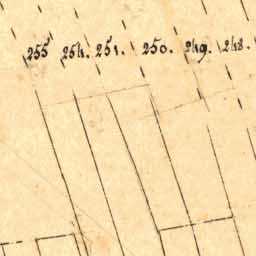 255 254. 251. 250. 249. 248.